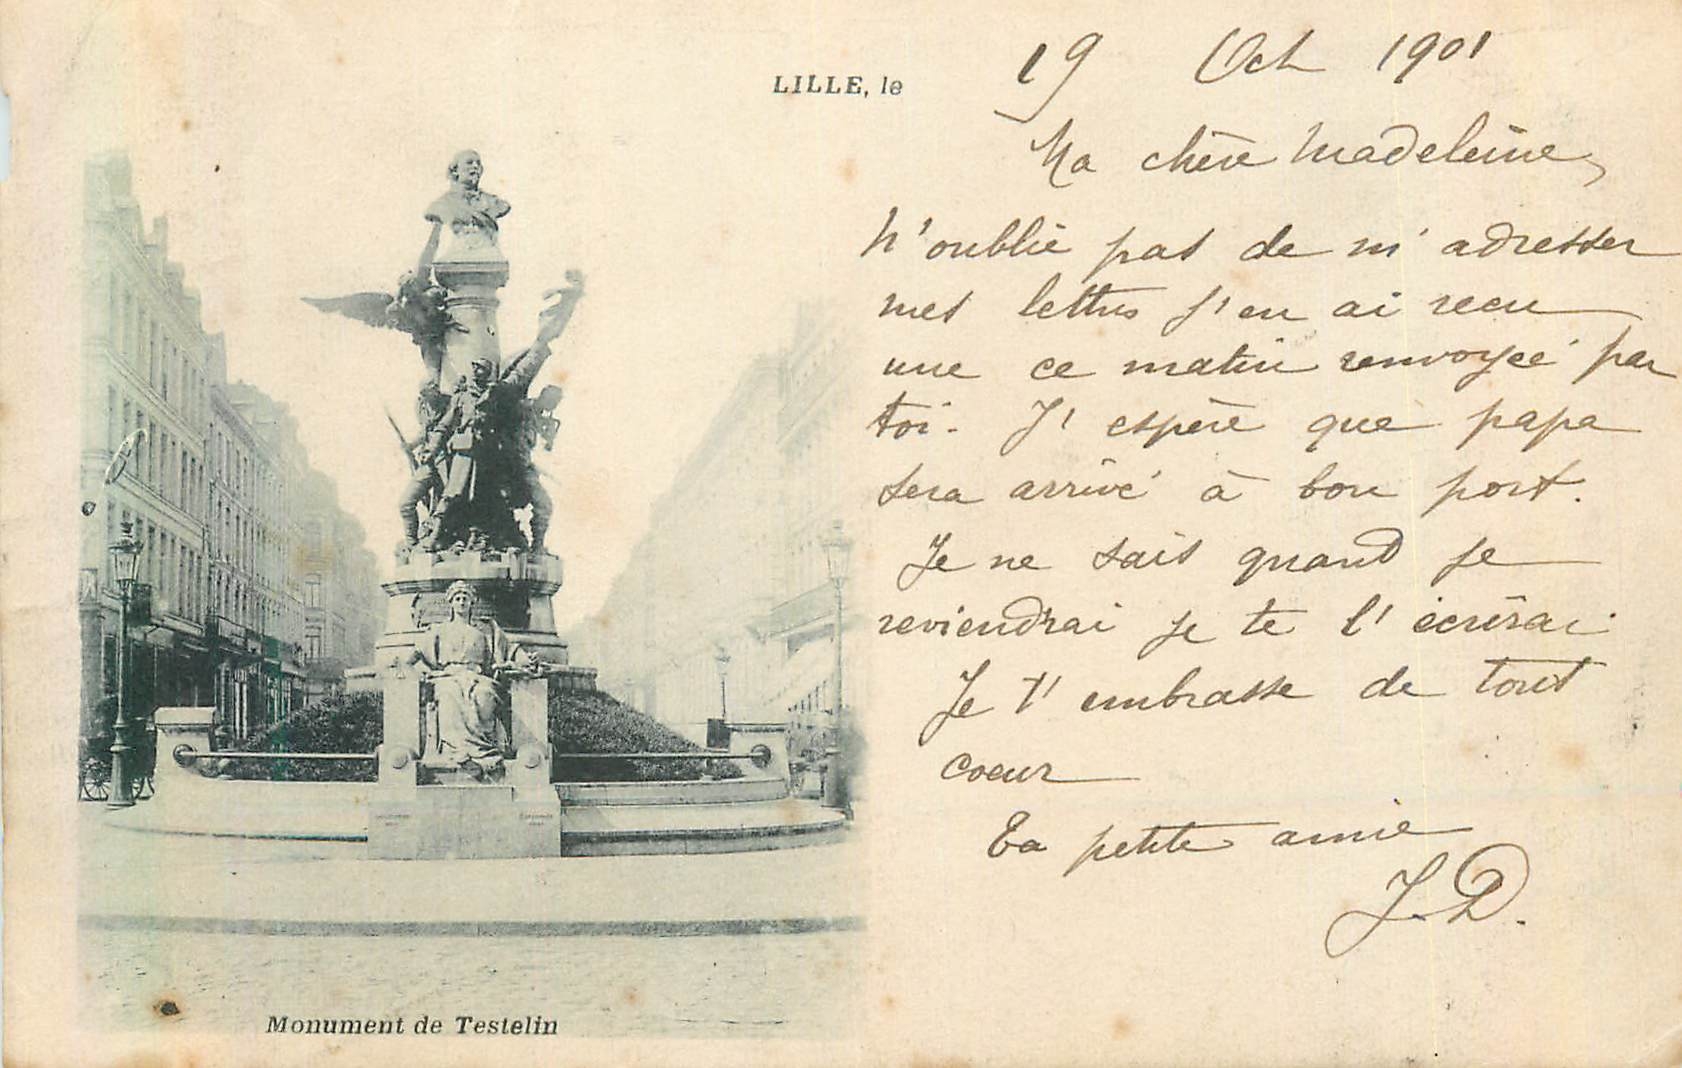 LILLE, le 19 Oct 1901
Ma chère Madeleine,
N'oublie pas de m'adresser
mes lettres j'en ai recu
une ce matin renvoyée par
toi. J'espère que papa
sera arrivé à bon port.
Je ne sais quand je
reviendrai je te l'écrirai
Je t'embrasse de tout
coeur
Ta petite amie
J. D.
Monument de Testelin